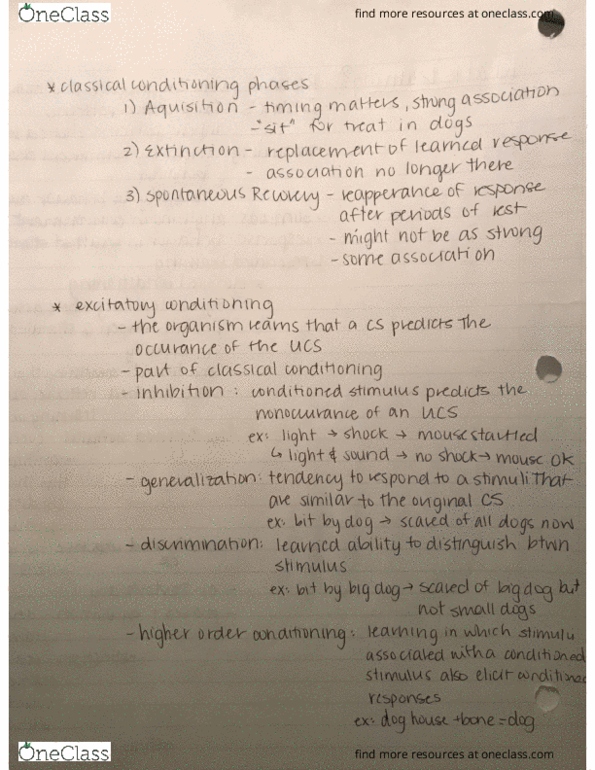 OneClass
find more resources at oneclass.com
* classical conditioning phases
1) Aquisition - timing matters, strong association
- "sit" for treat in dogs
2) Extinction - replacement of learned response
- association no longer there
3) Spontaneous Recovery - reapperance of response
after periods of rest
- might not be as strong
- some association
* excitatory conditioning
- the organism learns that a CS predicts the
occurance of the UCS
- part of classical conditioning
- inhibition : conditioned stimulus predicts the
nonoccurance of an UCS
ex: light → shock → mouse startled
↳ light & sound → no shock → mouse OK
- generalization: tendency to respond to a stimuli that
are similar to the original CS
ex: bit by dog → scared of all dogs now
- discrimination: learned ability to distinguish btwn
stimulus
ex: bit by big dog → scared of big dog but
not small dogs
- higher order conditioning: learning in which stimulu
associated with a conditioned
stimulus also elicit conditioned
responses
ex: dog house + bone = dog
OneClass
find more resources at oneclass.com